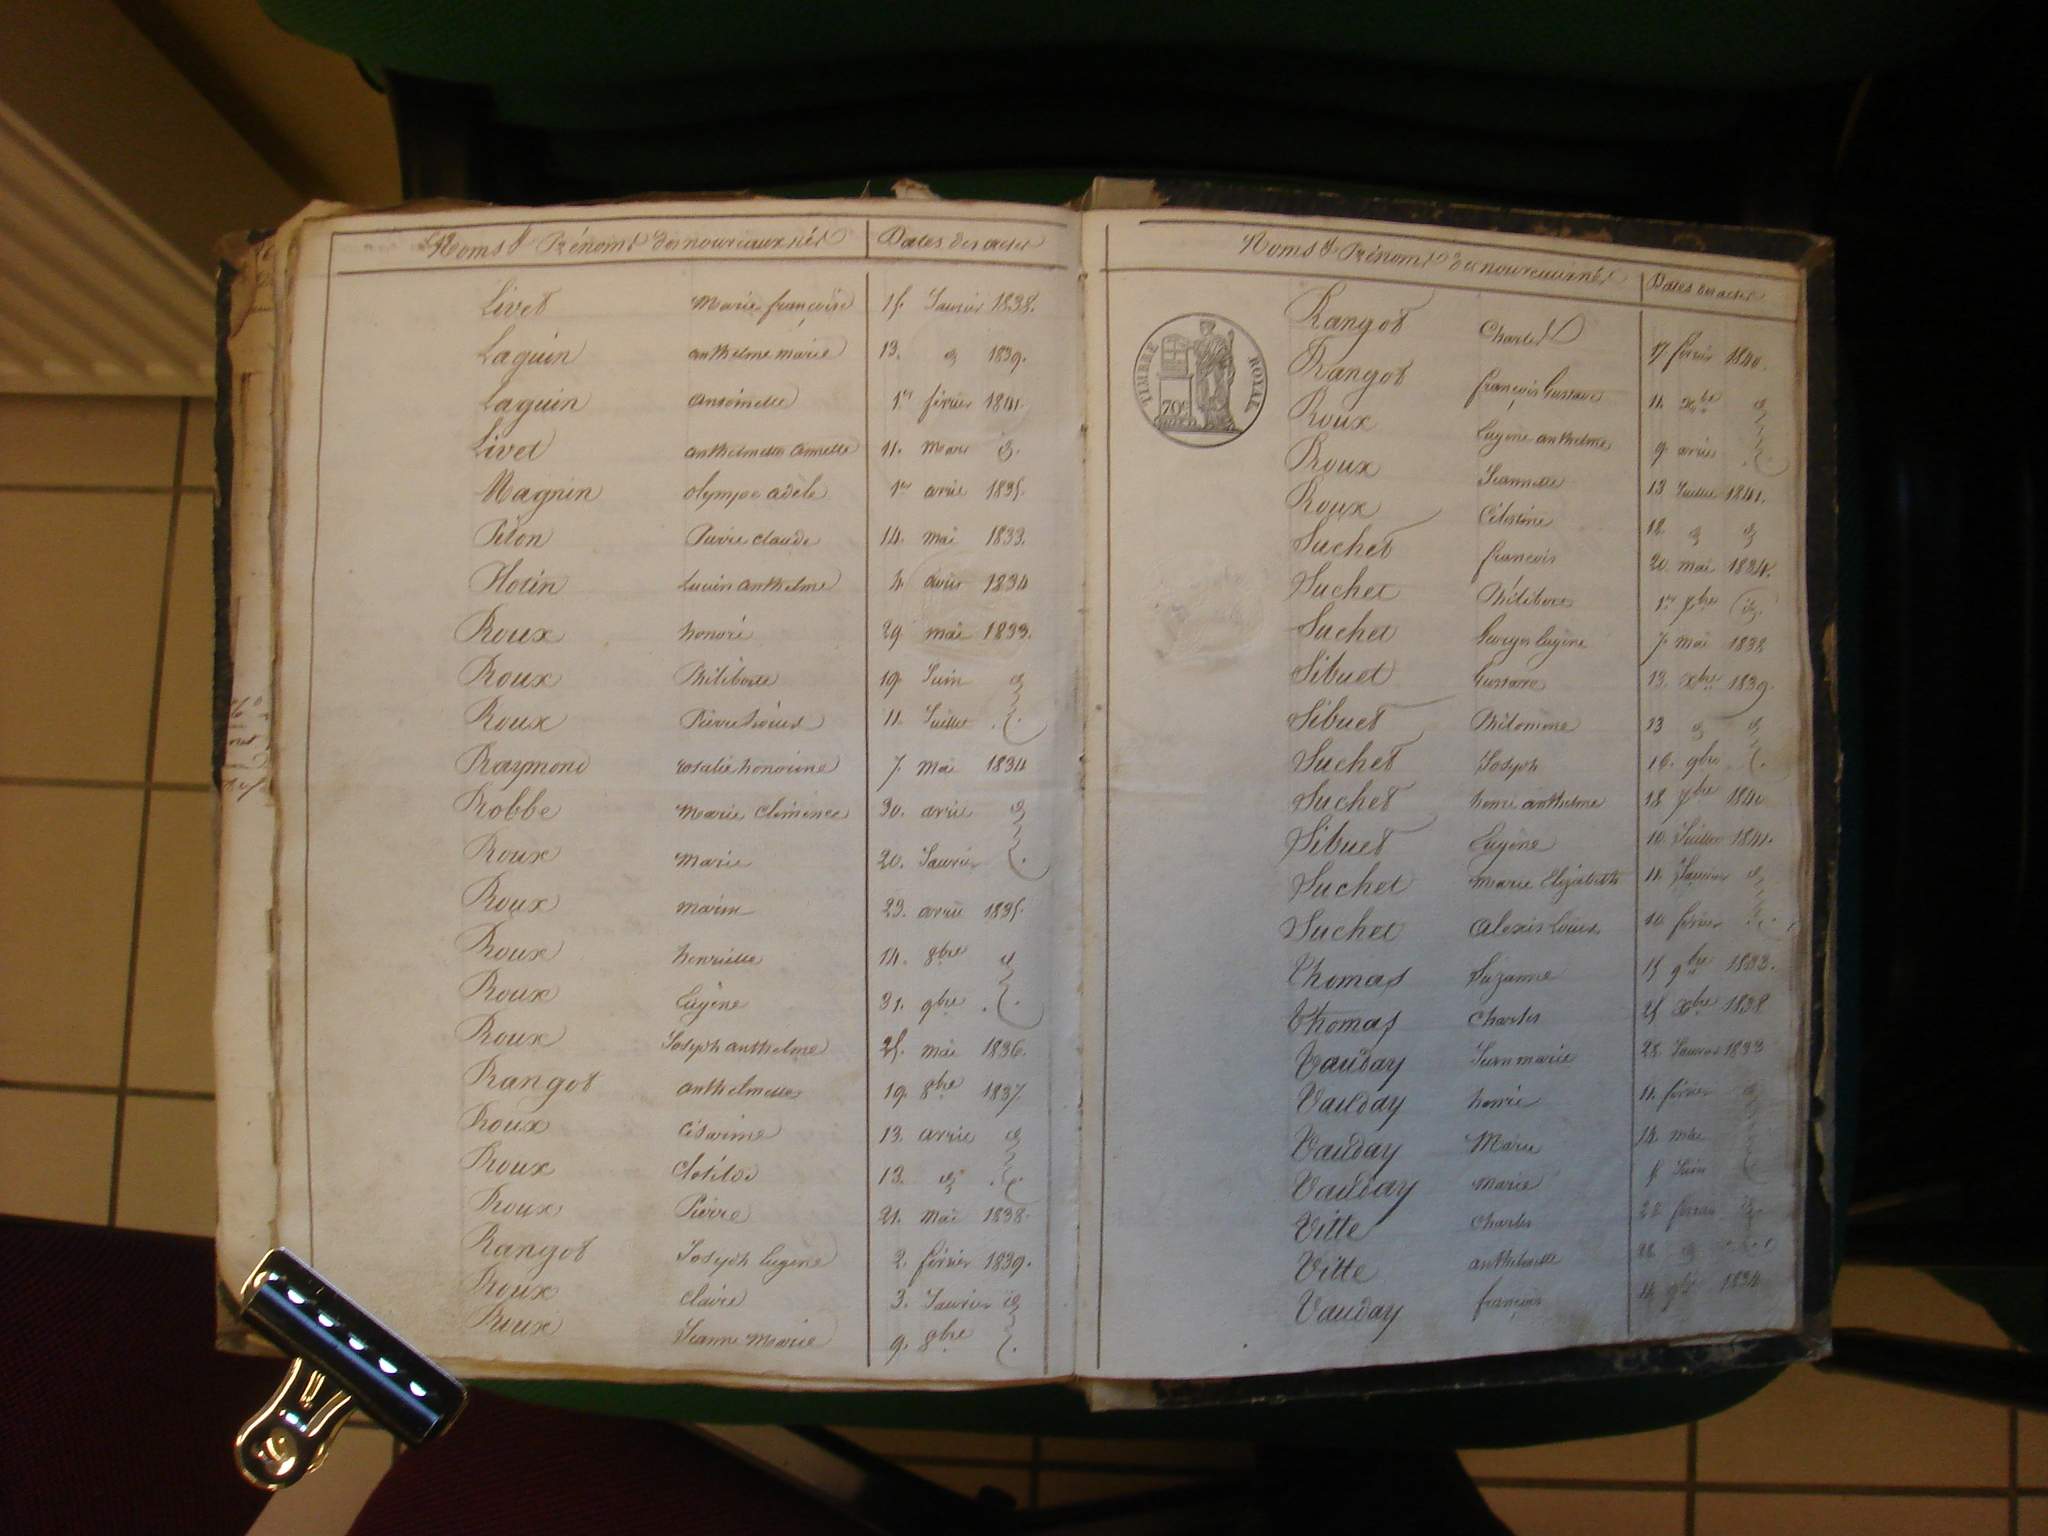 Noms & Prénoms des nouveaux nés Dates des actes
Livet Marie françoise 15. Janvier 1838.
Laguin anthelme marie 13. d 1839.
Laguin antoinette 1er février 1841.
Livet anthelmette annette 11. Mars d.
Magnin olympe adèle 1er avril 1835.
Piton Pierre claude 14. mai 1833.
Plotin Lucien anthelme 4. avril 1834
Roux honoré 29. mai 1833.
Roux Philiberte 19. Juin d
Roux Pierre Louis 11. Juillet
Raymond rosalie honorine 7. Mai 1834
Robbe Marie Clémence 30. avril d
Roux Marie 20. Janvier
Roux marin 23. avril 1835.
Roux henriette 14. 8bre d
Roux Eugène 31. 9bre
Roux Joseph anthelme 25. mai 1836.
Rangot anthelmette 19. 8bre 1837.
Roux Césarine 13. avril d
Roux Clotilde 13. d
Roux Pierre 21. Mai 1838.
Rangot Joseph Eugène 2. février 1839.
Roux Claire 3. Janvier d
Roux Jeanne Marie 9. 8bre
Noms & Prénoms des nouveaux nés Dates des actes
TIMBRE ROYAL
70c
Rangot Charles 17 février 1840.
Rangot françois Gustave 11. xbre d
Roux Eugène anthelme 9. avril
Roux Jeannette 13 Juillet 1841.
Roux Célestine 18. d d
Suchet françois 20. mai 1834.
Suchet Philiberte 1er 7bre d.
Suchet Georges Eugène 7. mai 1838
Sibuet Gustave 13. xbre 1839.
Sibuet Philomène 13 d d
Suchet Joseph 16. 9bre
Suchet henri anthelme 18 7bre 1840
Sibuet Eugène 10. Juillet 1841.
Suchet Marie Elizabeth 11. Janvier d
Suchet Alexis Louis 10. février
Thomas Suzanne 15 9bre 1833.
Thomas Charles 25 xbre 1838
Vauday Jean marie 28. Janvier 1833
Vauday henrie 11. février d
Vauday Marie 14. mai
Vauday Marie 5 Juin
Vitte Charles 22 février
Vitte anthelmette 28. d
Vauday françois 14. 9bre 1834